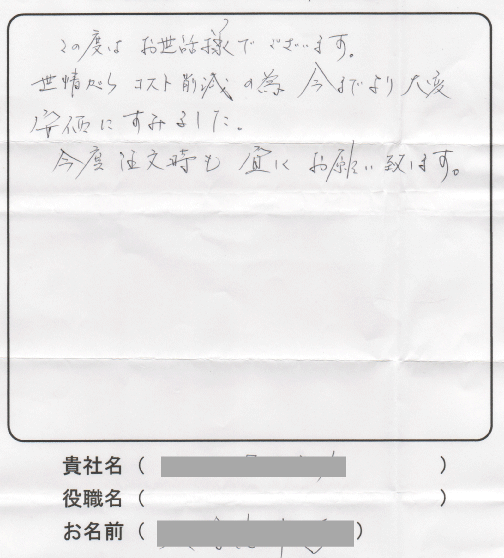 この度はお世話様でございます。
世情がらコスト削減の為今までより大変
安価にすみました。
今度注文時も宜しくお願い致します。
貴社名（ ）
役職名（ ）
お名前（ ）